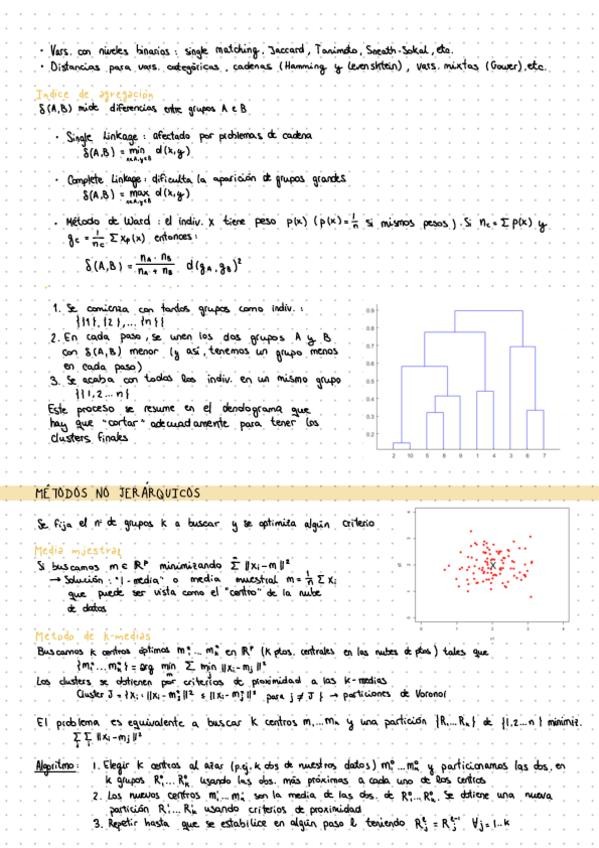 • Vars. con niveles binarios: single matching, Jaccard, Tanimoto, Sneath-Sokal, etc.
• Distancias para vars. categóricas, cadenas (Hamming y Levenshtein), vars. mixtas (Gower), etc.
Índice de agregación
δ(A,B) mide diferencias entre grupos A e B
• Single Linkage: afectado por problemas de cadena
δ(A,B) = min x∈A,y∈B d(x,y)
• Complete Linkage: dificulta la aparición de grupos grandes
δ(A,B) = max x∈A,y∈B d(x,y)
• Método de Ward: el indiv. x tiene peso p(x) (p(x)=1/n si mismos pesos). Si nc = Σ p(x) y
gc = 1/nc Σ xp(x) entonces:
δ(A,B) = nA · nB / nA + nB d(gA, gB)²
1. Se comienza con tantos grupos como indiv.:
{{1}, {2}, ... {n}}
2. En cada paso, se unen los dos grupos A y B
con δ(A,B) menor (y así, tenemos un grupo menos
en cada paso)
3. Se acaba con todos los indiv. en un mismo grupo
{{1,2...n}
Este proceso se resume en el dendograma que
hay que "cortar" adecuadamente para tener los
clusters finales
0.9
0.8
0.7
0.6
0.5
0.4
0.3
0.2
2 10 5 8 9 1 4 3 6 7
MÉTODOS NO JERÁRQUICOS
Se fija el nº de grupos k a buscar y se optimiza algún criterio
Media muestral
Si buscamos m ∈ ℝᵖ minimizando Σ ||xi - m||²
→ Solución: "1-media" o media muestral m = 1/n Σ xi
que puede ser vista como el "centro" de la nube
de datos
Método de k-medias
Buscamos k centros óptimos m₁*... mₖ* en ℝᵖ (k ptos. centrales en las nubes de ptos) tales que
{m₁*...mₖ*} = arg min m Σ min ||xi - mj||²
Los clusters se obtienen por criterios de proximidad a las k-medias
Cluster J = {xi : ||xi - mJ*||² ≤ ||xi - mj*||² para j ≠ J} → particiones de Voronoi
El problema es equivalente a buscar k centros m₁...mₖ y una partición {R₁...Rₖ} de {1,2...n} minimiz.
Σ Σ ||xi - mj||²
Algoritmo: 1. Elegir k centros al azar (p.ej. k obs de nuestros datos) m₁⁰...mₖ⁰ y particionamos las obs. en
k grupos R₁⁰...Rₖ⁰ usando las obs. más próximas a cada uno de los centros
2. Los nuevos centros m₁¹...mₖ¹ son la media de las obs. de R₁⁰...Rₖ⁰. Se obtiene una nueva
partición R₁¹...Rₖ¹ usando criterios de proximidad
3. Repetir hasta que se estabilice en algún paso l teniendo Rjˡ = Rjˡ⁻¹ ∀j=1..k